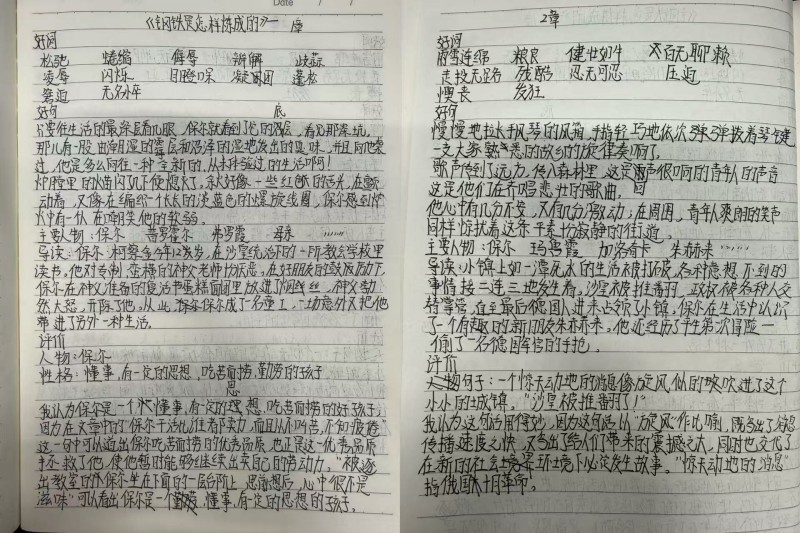 Date / /
《钢铁是怎样炼成的》一章
好词
松弛 蜷缩 侮辱 辩解
凌辱 闪烁 目瞪口呆 凝固 蓬松
窘迫 无名小卒
好句 底
只要往生活的最深层看几眼，保尔就看到了他的深层，看见那深坑，
那儿有一股由潮湿的霉层和沼泽的湿地发出的臭味，并且向他袭
过，他是多么向往一种全新的，从未体验过的生活啊！
炉膛里的火苗闪几下便熄灭了，炭火好像一些红色的舌头，在颤
动着，又像在编织一个长长的淡蓝色的螺旋线圈，保尔感到炉
火中有一伙在嘲笑他的软弱。
主要人物：保尔 普罗霍尔 弗罗霞 母亲 ……
导读：保尔·柯察金今年12岁，在沙皇统治下的一所教会学校里
读书。他对专制、蛮横的神父老师怀恨，在好朋友的鼓励下，
保尔在神父准备的复活节蛋糕面团里放进了烟丝，神父勃
然大怒，开除了他，从此，保尔成了一名童工，一场意外又把他
带进了另外一种生活。
评价
人物：保尔
性格：懂事，有一定的思想，吃苦而捞，勤劳的孩子
思
我认为保尔是一个懂事，有一定的理想，吃苦而捞的好孩子，
因为在文章中的"保尔干活比谁都卖力，而且从不叫苦，不知疲倦"
这一句中可以道出保尔吃苦而捞的优秀品质，也正是这一优秀品质
拯救了他，使他暂时能够继续出卖自己的劳动力，"被逐
出教室的外保尔坐在下面的一层台阶上，思前想后，心中很不是
滋味"可以看出保尔是一个懂事，有一定的思想的孩子。
2章
好词
雨雪连绵 粮良 健壮如牛 百无聊赖
走投无路 残酷 忍无可忍 压迫
懊丧 发狂
好句
慢慢地拉长手风琴的风箱，手指轻巧地依次弹弹拨着琴键
一支大家熟悉的故乡的旋律奏响了。
歌声传到了远方，传入森林里，这是很响的青年人的声音
这是他们在齐唱悲壮的歌曲。
他心中有几分不安，又有几分激动；在周围，青年人爽朗的笑声
同样惊扰着这条平素均寂静的街道。
主要人物：保尔 玛鲁霞 加洛奇卡 朱赫来 ……
导读：小镇上如一潭死水的生活被打破，各种意想不到的
事情接二连三地发生着。沙皇被推翻，政权被各种人交
替掌管，直至最后德国人进来占领了小镇，保尔在生活中认识
了一个有趣的新朋友朱赫来，他还经历了平生第一次冒险—
偷了一名德国军官的手枪。
评价
句子：一个惊天动地的消息像旋风似的吹进了这个
小小的城镇。"沙皇被推翻了！"
我认为，这句话用得妙，因为这句话从"旋风"作比喻，既写出了消息
传播速度之快，又写出了给人们带来的震撼之大，同时也交代了
在新的社会环境下必定发生故事。"惊天动地的消息"
指俄国十月革命。